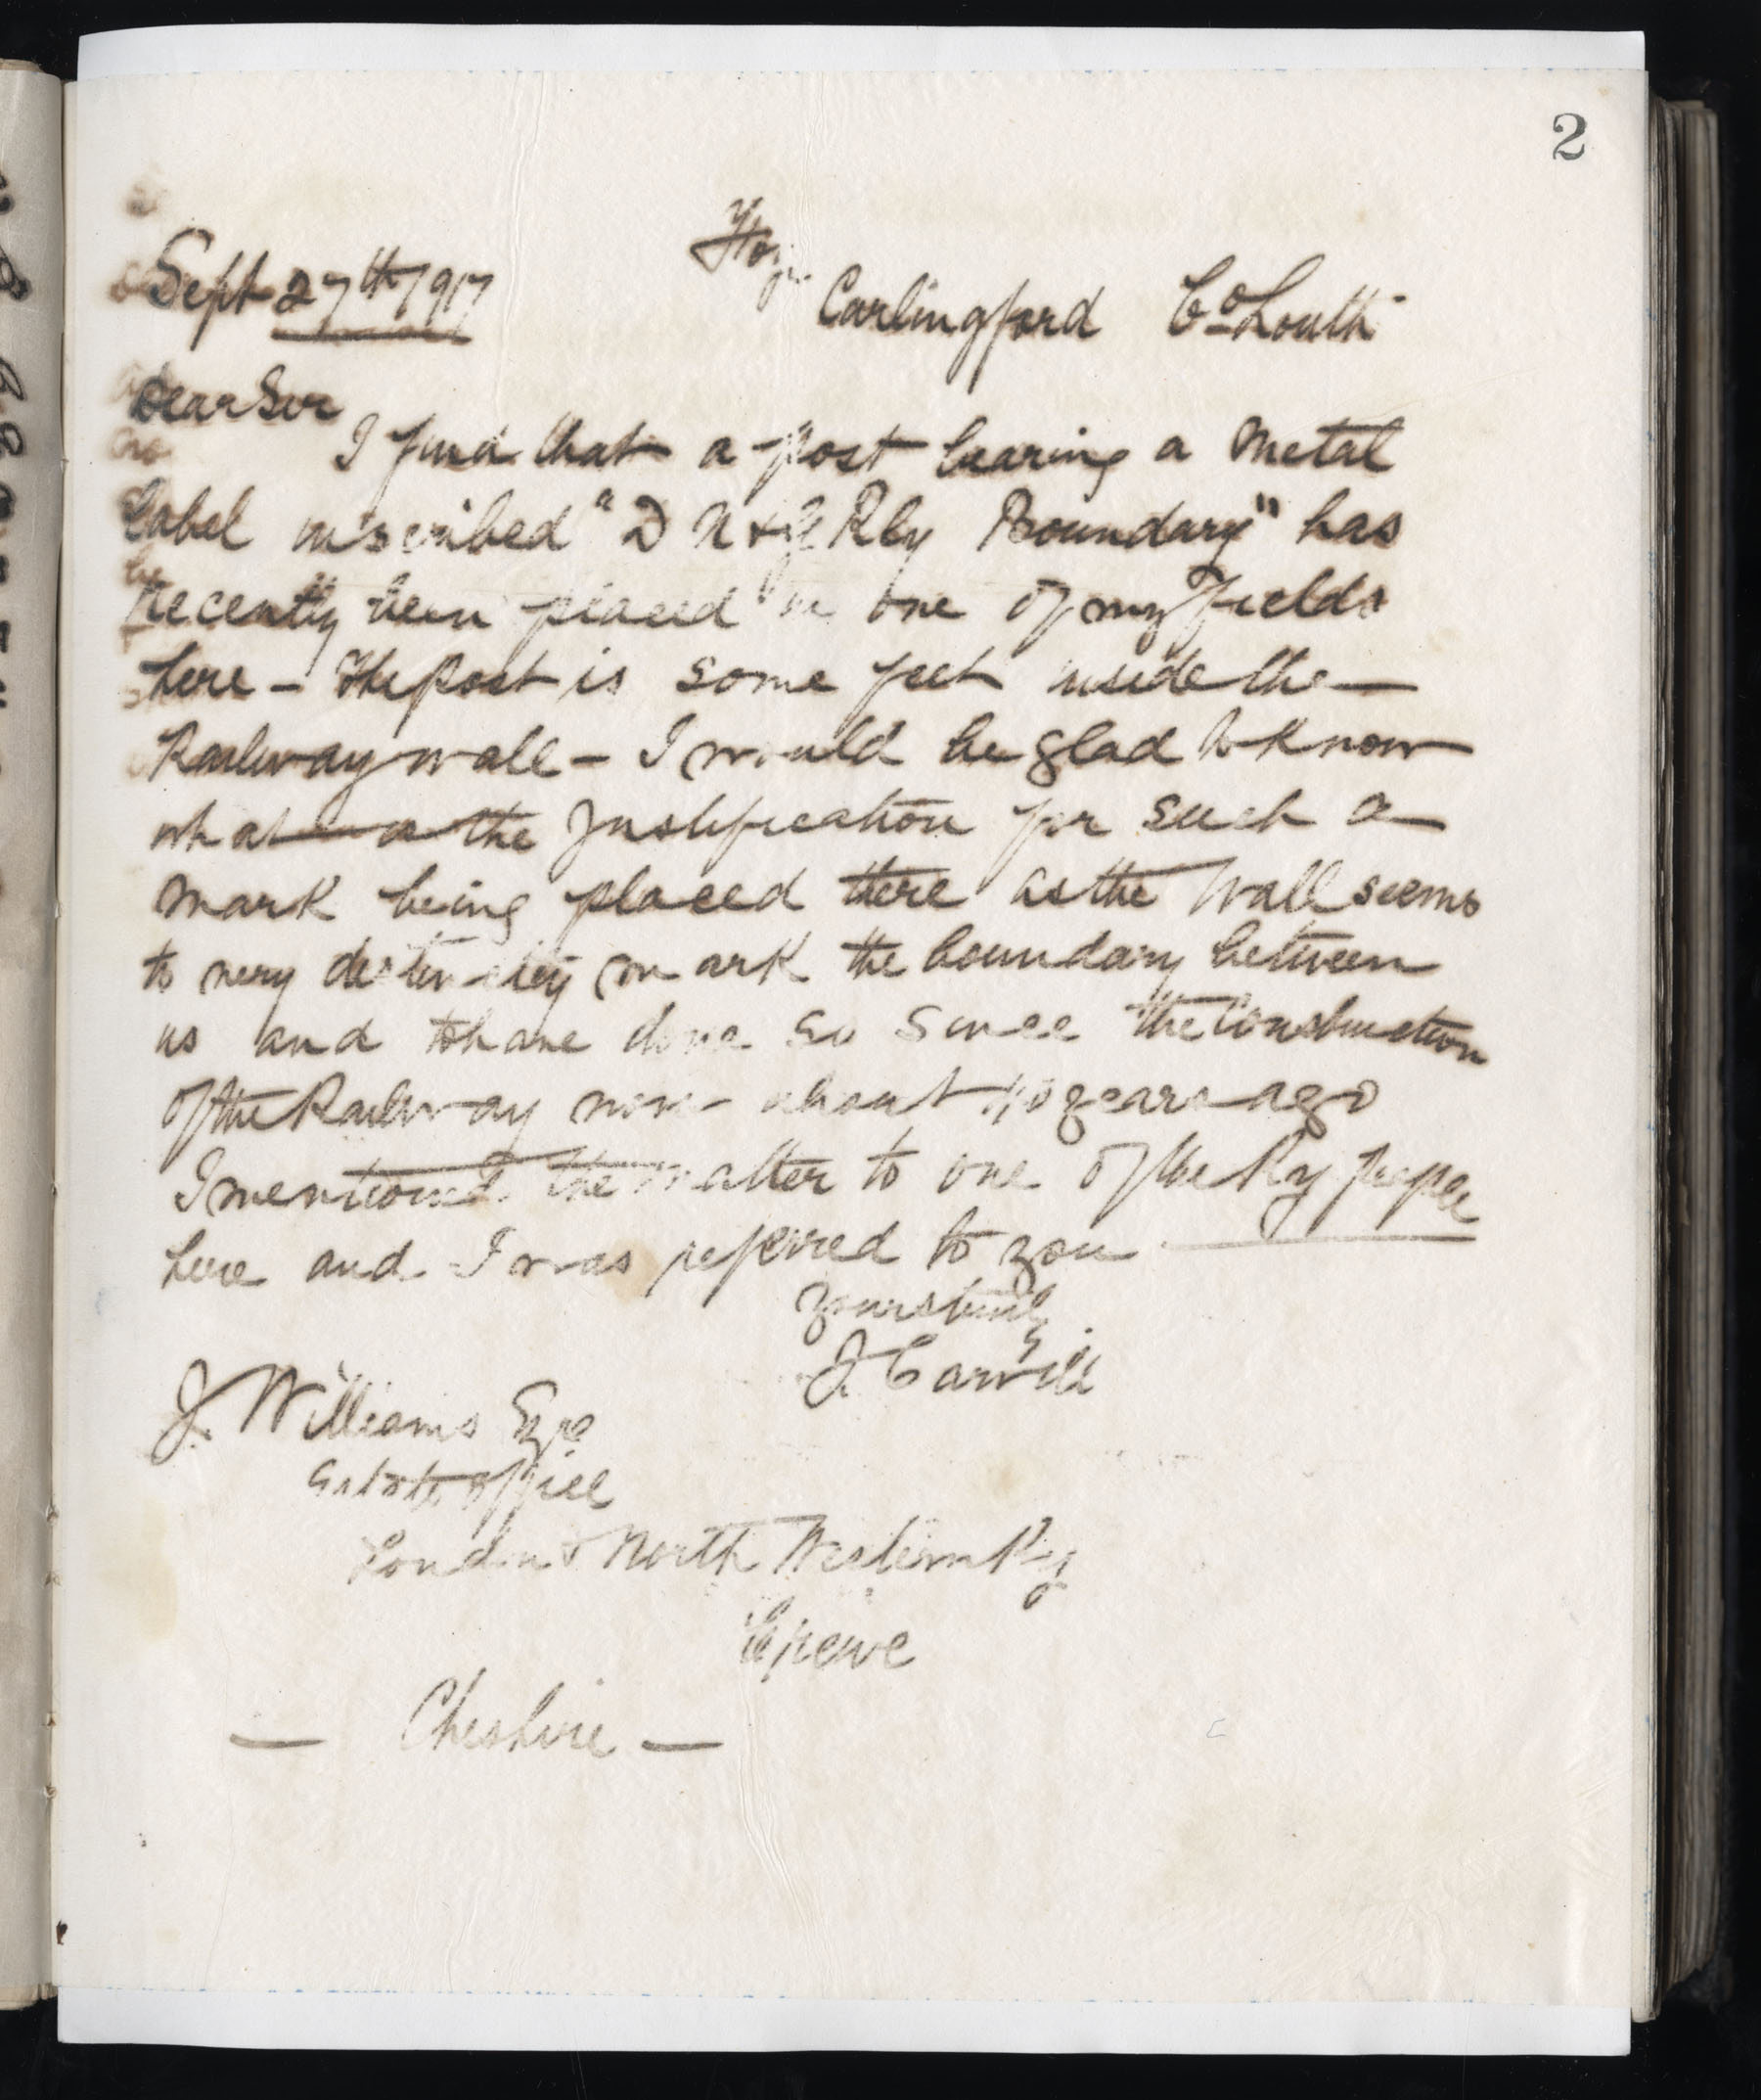 2
Sept 27th 1917
Carlingford Co Louth
Dear Sir
I find that a post bearing a metal
label inscribed "D N & G Rly Boundary" has
recently been placed in one of my fields
here - The post is some feet inside the
Railway wall - I would be glad to know
what is the justification for such a
mark being placed there as the Wall seems
to very distinctly mark the boundary between
us and to have done so since the Construction
of the Railway now about 40 years ago
I mentioned the matter to one of the Ry people
here and I was referred to you
Yours truly
J. Carvill
J. Williams Esqre
Estate office
London & North Western Ry
Crewe
— Cheshire —